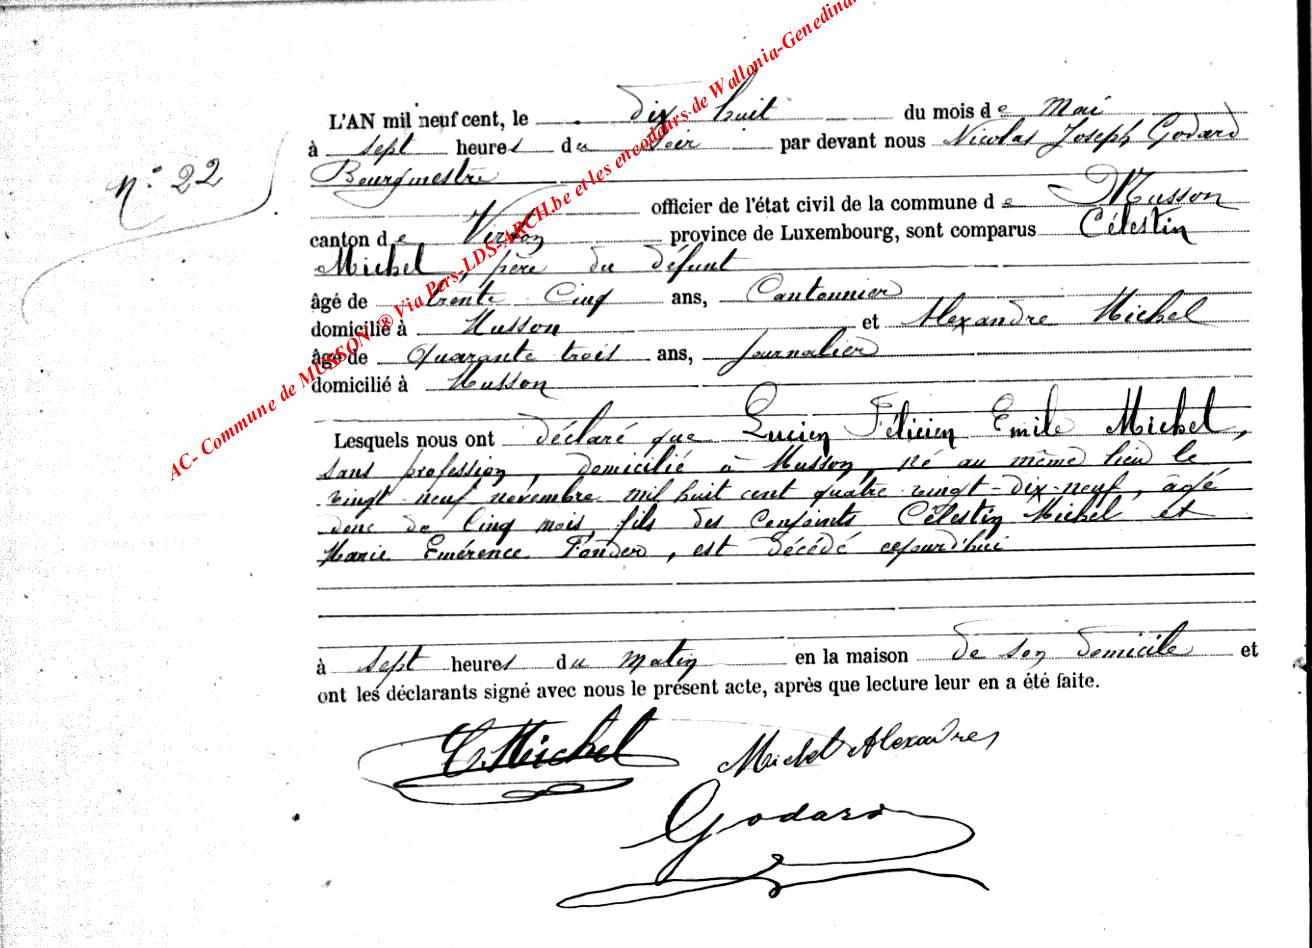 L'AN mil neuf cent, le dix huit du mois de Mai
à sept heures du soir par devant nous Nicolas Joseph Godard
n° 22
Bourgmestre
officier de l'état civil de la commune de Musson
canton de Virton province de Luxembourg, sont comparus Célestin
Michel, père du défunt
âgé de trente Cinq ans, Cantonnier
domicilié à Musson et Alexandre Michel
âgé de Quarante trois ans, journalier
domicilié à Musson
Lesquels nous ont déclaré que Lucien Félicien Emile Michel,
sans profession, domicilié à Musson, né au même lieu le
vingt neuf novembre mil huit cent quatre vingt-dix-neuf, âgé
donc de Cinq mois, fils des conjoints Célestin Michel et
Marie Emérence Fonder, est décédé cejourd'hui
à sept heures du matin en la maison de son domicile et
ont les déclarants signé avec nous le présent acte, après que lecture leur en a été faite.
C. Michel Michel Alexandre
Godard
AC- Commune de MUSSON ® Via Pers-LDS-ARCH.be et les encodeurs de Wallonia-Genedinan